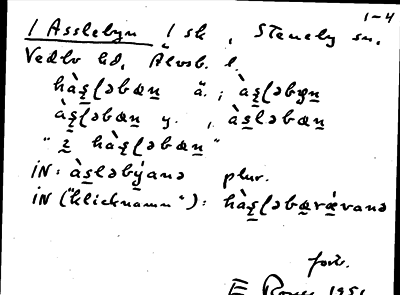 1-4
/ Asslebyn / sk , Steneby sn.
Vedbo hd, Älvsb. l.
hàs̠ləbæn̠ ä. ; às̠ləbyn̠
às̠ləbæn̠ y. , às̠ləbæn̠
" i̠ hàs̠ləbæn̠ "
iN: às̠ləbýanə plur.
iN ("klicknamn"): hàs̠ləbærǽvanə
forts.
E 1951